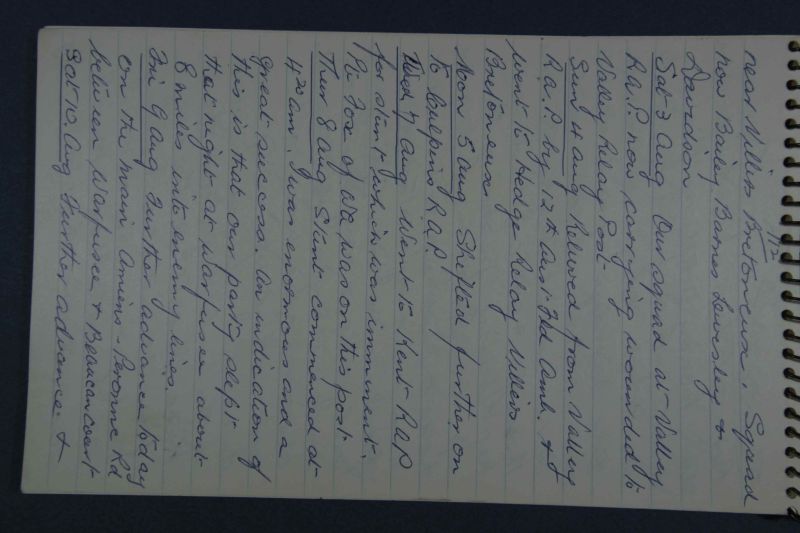 112
near Villers Bretoneux. Squad
now Bailey Barnes Lewesley &
Davidson
Sat 3 Aug Our squad at Valley
R.a.P. now carrying wounded to
Valley Relay Post
Sun 4 Aug Relieved from Valley
R.a.P. by 12th Aust Fld Amb. &
went to Hedge Relay Villers
Bretoneux
Mon 5 Aug Shifted further on
to Culpins R.A.P.
Wed 7 Aug Went to Kent RAP
for stunt which was imminent.
Pte Fox of WA was on this post
Thur 8 Aug Stunt commenced at
4 20 am. It was enormous and a
great success. An indication of
this is that our party slept
that night at Warfusee about
8 miles into enemy lines.
Fri 9 Aug Further advance today
on the main Amiens - Peronne Rd
between Warfusee & Beaucancourt
Sat 10 Aug Further advance &